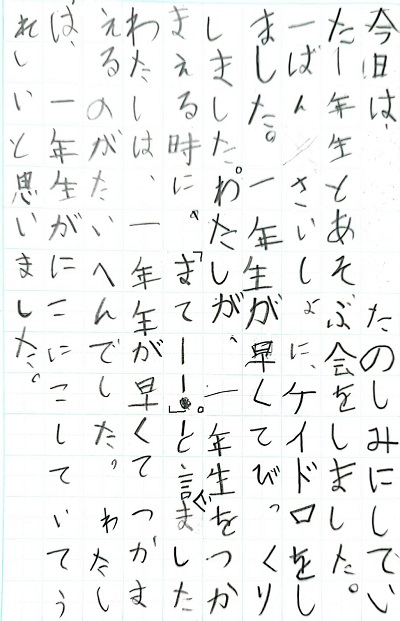 今日は、たのしみにしてい
た一年生とあそぶ会をしました。
一ばんさいしょに、ケイドロをし
ました。一年生が早くてびっくり
しました。わたしが、一年生をつか
まえる時に、「まてーー!」。と言いました
わたしは、一年年が早くてつかま
えるのがたいへんでした。わたし
は、一年生がにこにこしていてう
れしいと思いました。